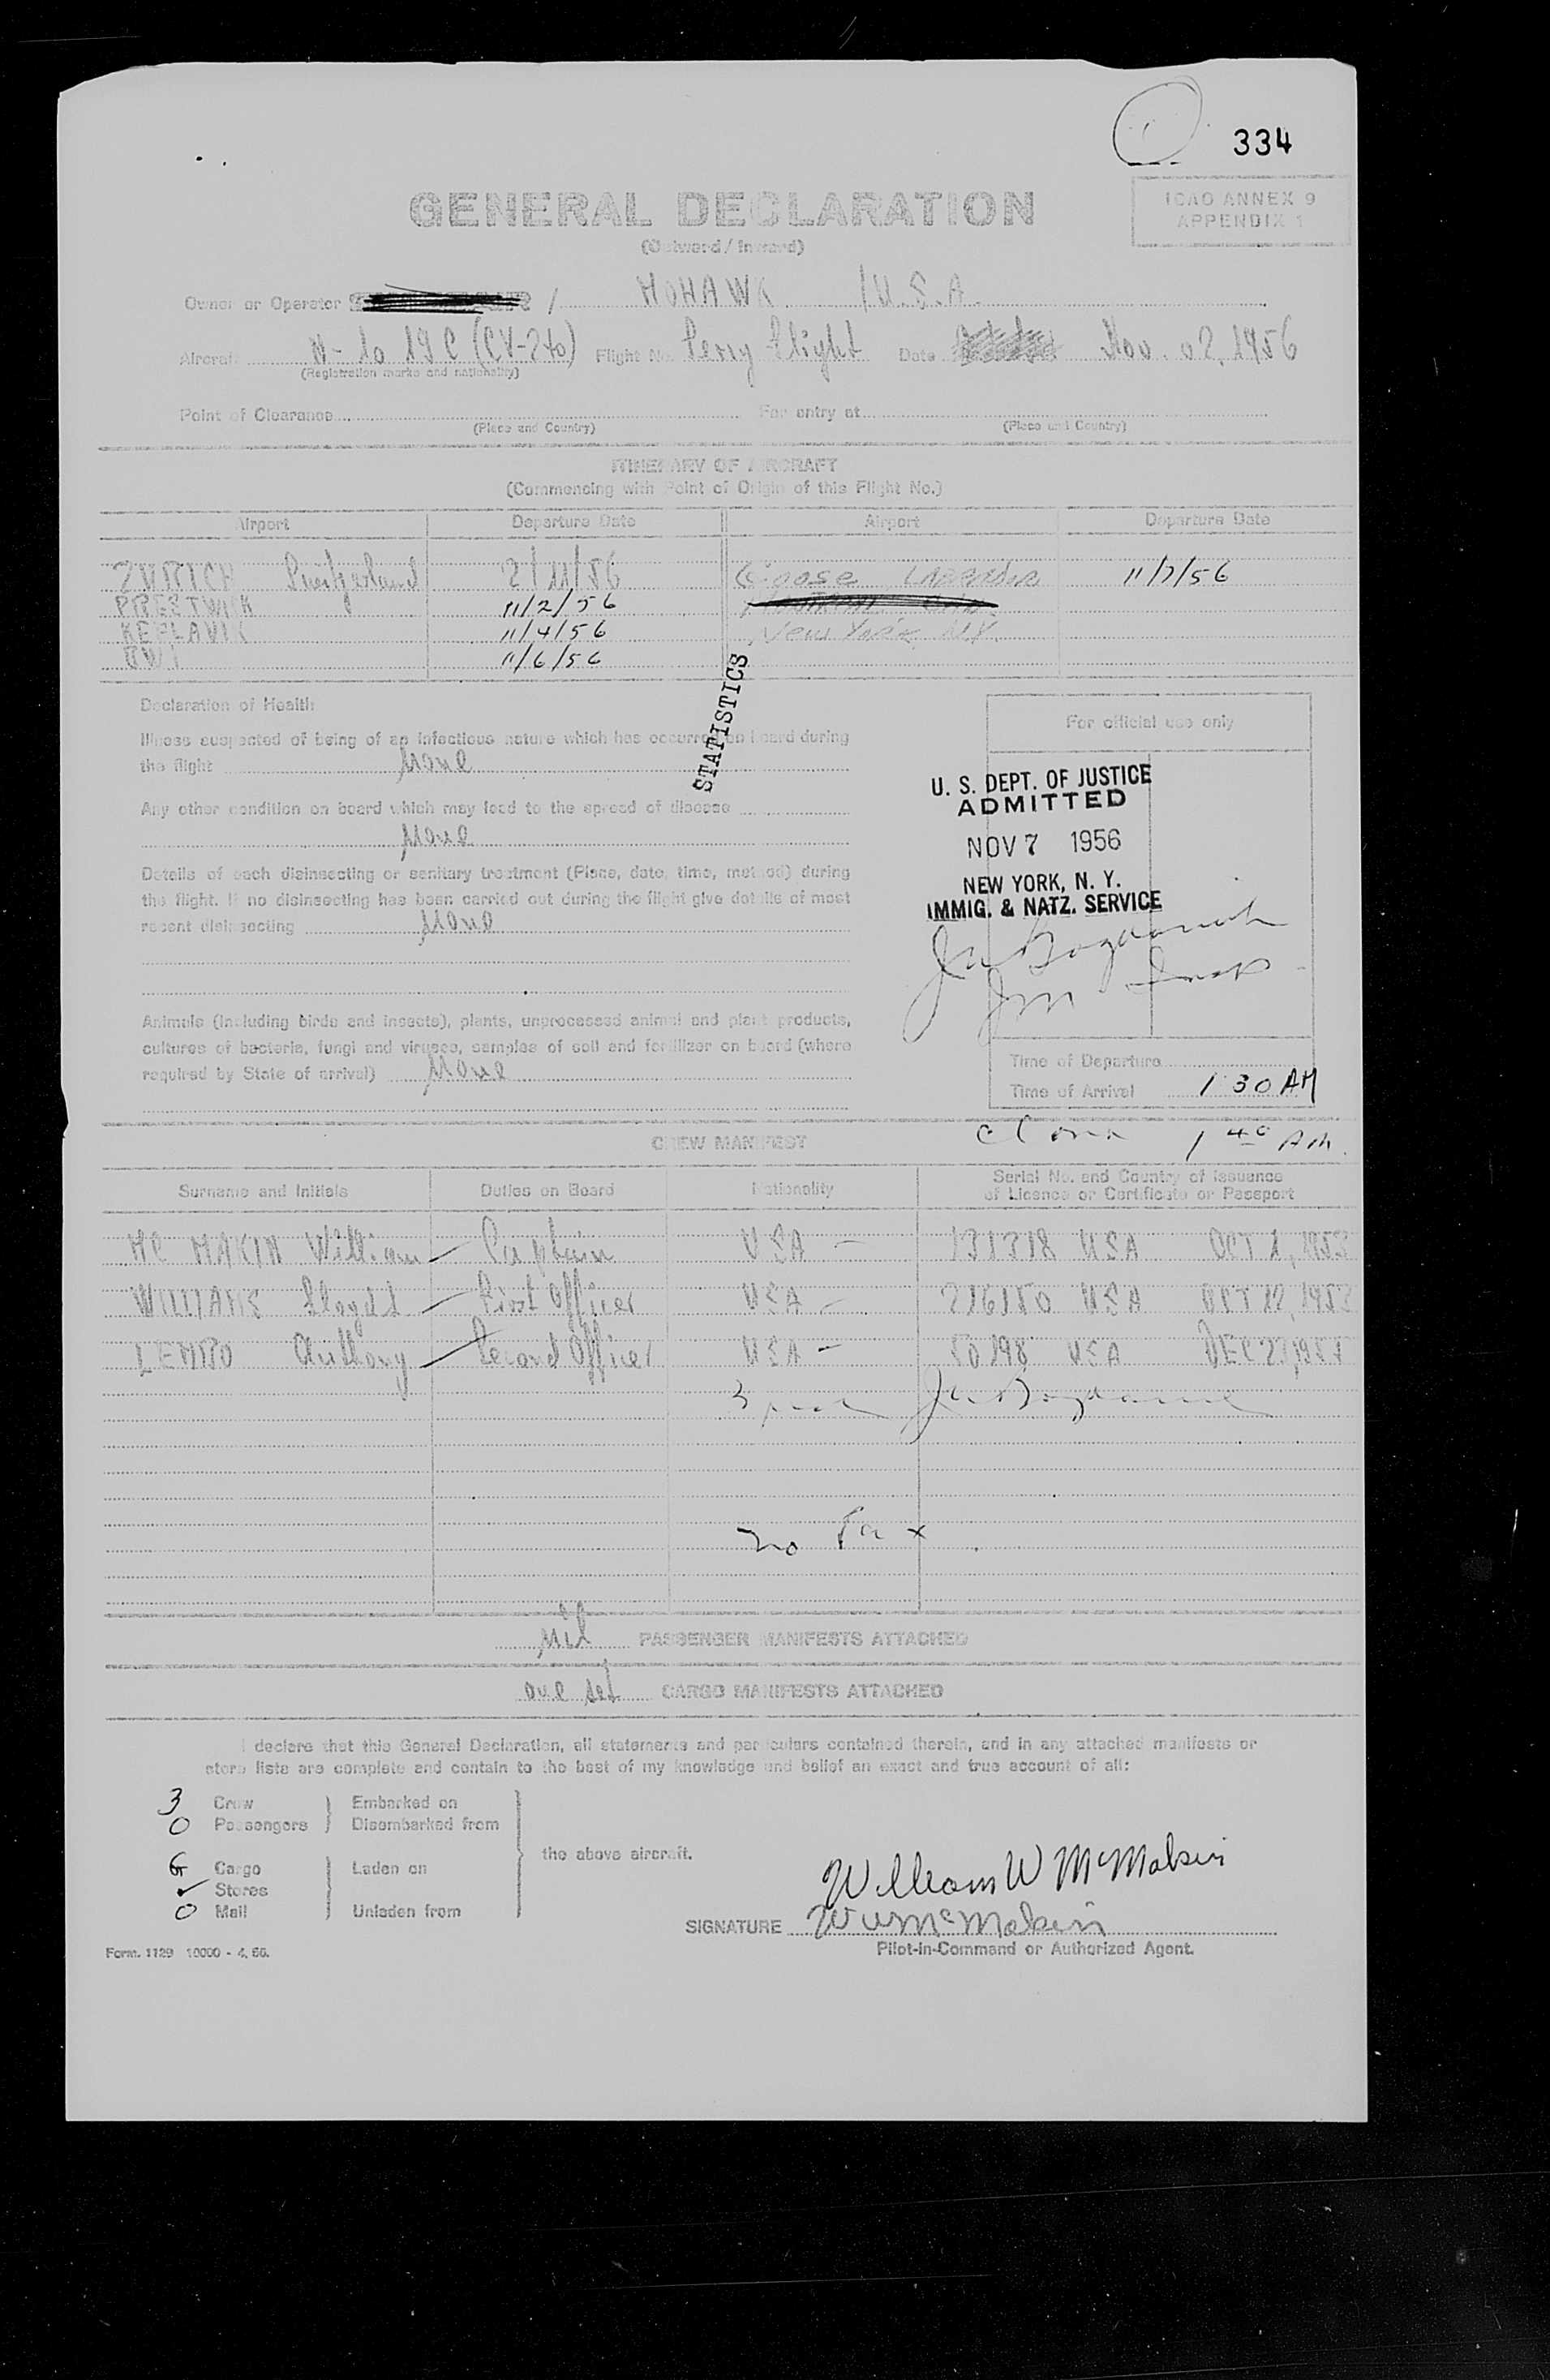 334
GENERAL DECLARATION
(Outward / Inward)
ICAO ANNEX 9
APPENDIX 1
Owner or Operator / MOHAWK / U.S.A.
Aircraft (CV-240) Flight No. Ferry Flight Date Nov. 02, 1956
(Registration marks and nationality)
Point of Clearance For entry at
(Place and Country) (Place and Country)
ITINERARY OF AIRCRAFT
(Commencing with Point of Origin of this Flight No.)
Airport Departure Date Airport Departure Date
ZURICH Switzerland 2/11/56 Goose Labrador 11/7/56
PRESTWICK 11/2/56
KEFLAVIK 11/4/56 New York NY.
BW1 11/6/56
STATISTICS
Declaration of Health
Illness suspected of being of an infectious nature which has occurred on board during
the flight None
Any other condition on board which may lead to the spread of disease
None
Details of each disinsecting or sanitary treatment (Place, date, time, method) during
the flight. If no disinsecting has been carried out during the flight give details of most
recent disinsecting None
Animals (including birds and insects), plants, unprocessed animal and plant products,
cultures of bacteria, fungi and viruses, samples of soil and fertilizer on board (where
required by State of arrival) None
For official use only
U. S. DEPT. OF JUSTICE
ADMITTED
NOV 7 1956
NEW YORK, N. Y.
IMMIG. & NATZ. SERVICE
Time of Departure
Time of Arrival 1 30 AM
1 40 AM.
CREW MANIFEST
Surname and Initials Duties on Board Nationality Serial No. and Country of Issuance
of Licence or Certificate or Passport
MC MAKIN William Captain USA 131318 USA OCT 1, 1953
WILLIAMS Lloyd Firot Officer USA 216150 USA OCT 12, 1953
Anthony Second Officer USA 50198 USA
No Tax
Nil PASSENGER MANIFESTS ATTACHED
one set CARGO MANIFESTS ATTACHED
I declare that this General Declaration, all statements and particulars contained therein, and in any attached manifests or
store lists are complete and contain to the best of my knowledge and belief an exact and true account of all:
3 Crew Embarked on
0 Passengers Disembarked from
the above aircraft.
Cargo Laden on
✓ Stores
0 Mail Unladen from
William W McMakin
SIGNATURE W W McMakin
Pilot-in-Command or Authorized Agent.
Form. 1129 10000 - 4. 56.